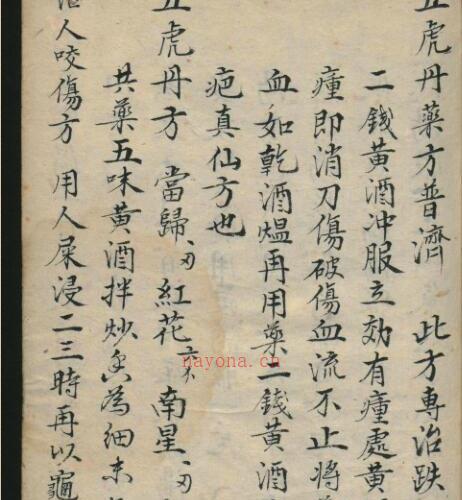 五虎丹藥方普濟 此方專治跌
二錢黃酒冲服立効有瘇處黃
瘇即消刀傷破傷血流不止將
血如乾酒熅再用藥二錢黃酒
疤真仙方也
五虎丹方 當歸 紅花 南星
共藥五味黃酒拌炒 為細末
人咬傷方 用人屎浸二三時再以龜
nayona.cn